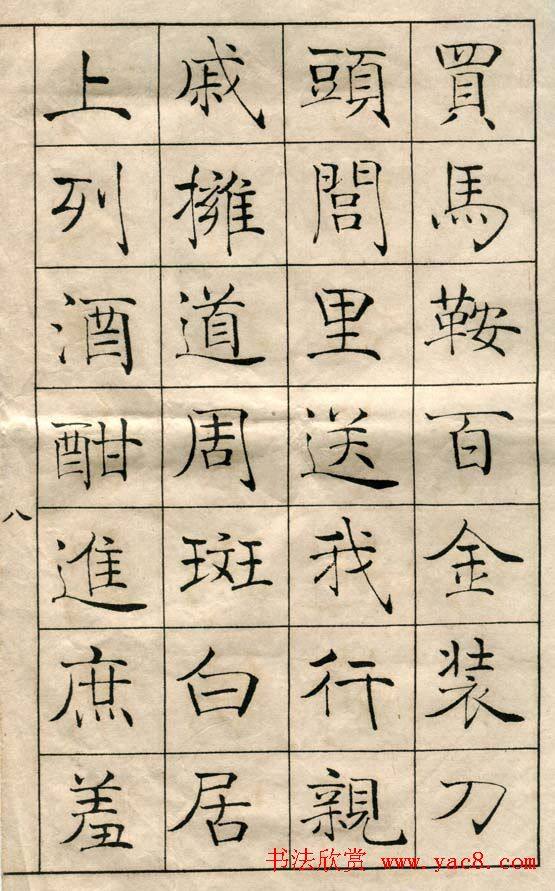 買馬鞍百金装刀
頭閭里送我行親
戚擁道周斑白居
上列酒酣進庶羞
八
书法欣赏 www.yac8.com